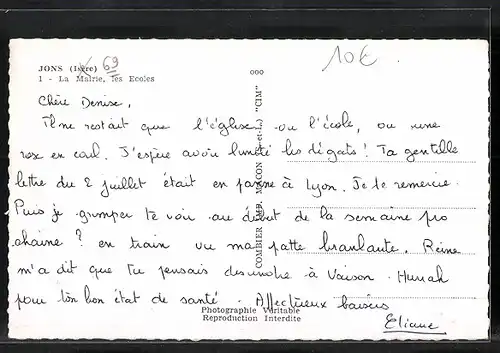 JONS (Isère) 69
10€.
1 - La Mairie, les Ecoles
Chère Denise,
Il ne restait que l'église ou l'école, ou une
rose en coul. J'espère avoir limité les dégats! Ta gentille
lettre du 2 juillet était en panne à Lyon. Je te remercie.
Puis je grimper te voir au début de la semaine pro
chaine? en train vu ma patte branlante. Reine
m'a dit que tu pensais descendre à Vaison. Hurrah
pour ton bon état de santé. Affectueux baisers
Eliane
COMBIER IMP. MACON (S.-et-L.) "CIM"
Photographie Véritable
Reproduction Interdite